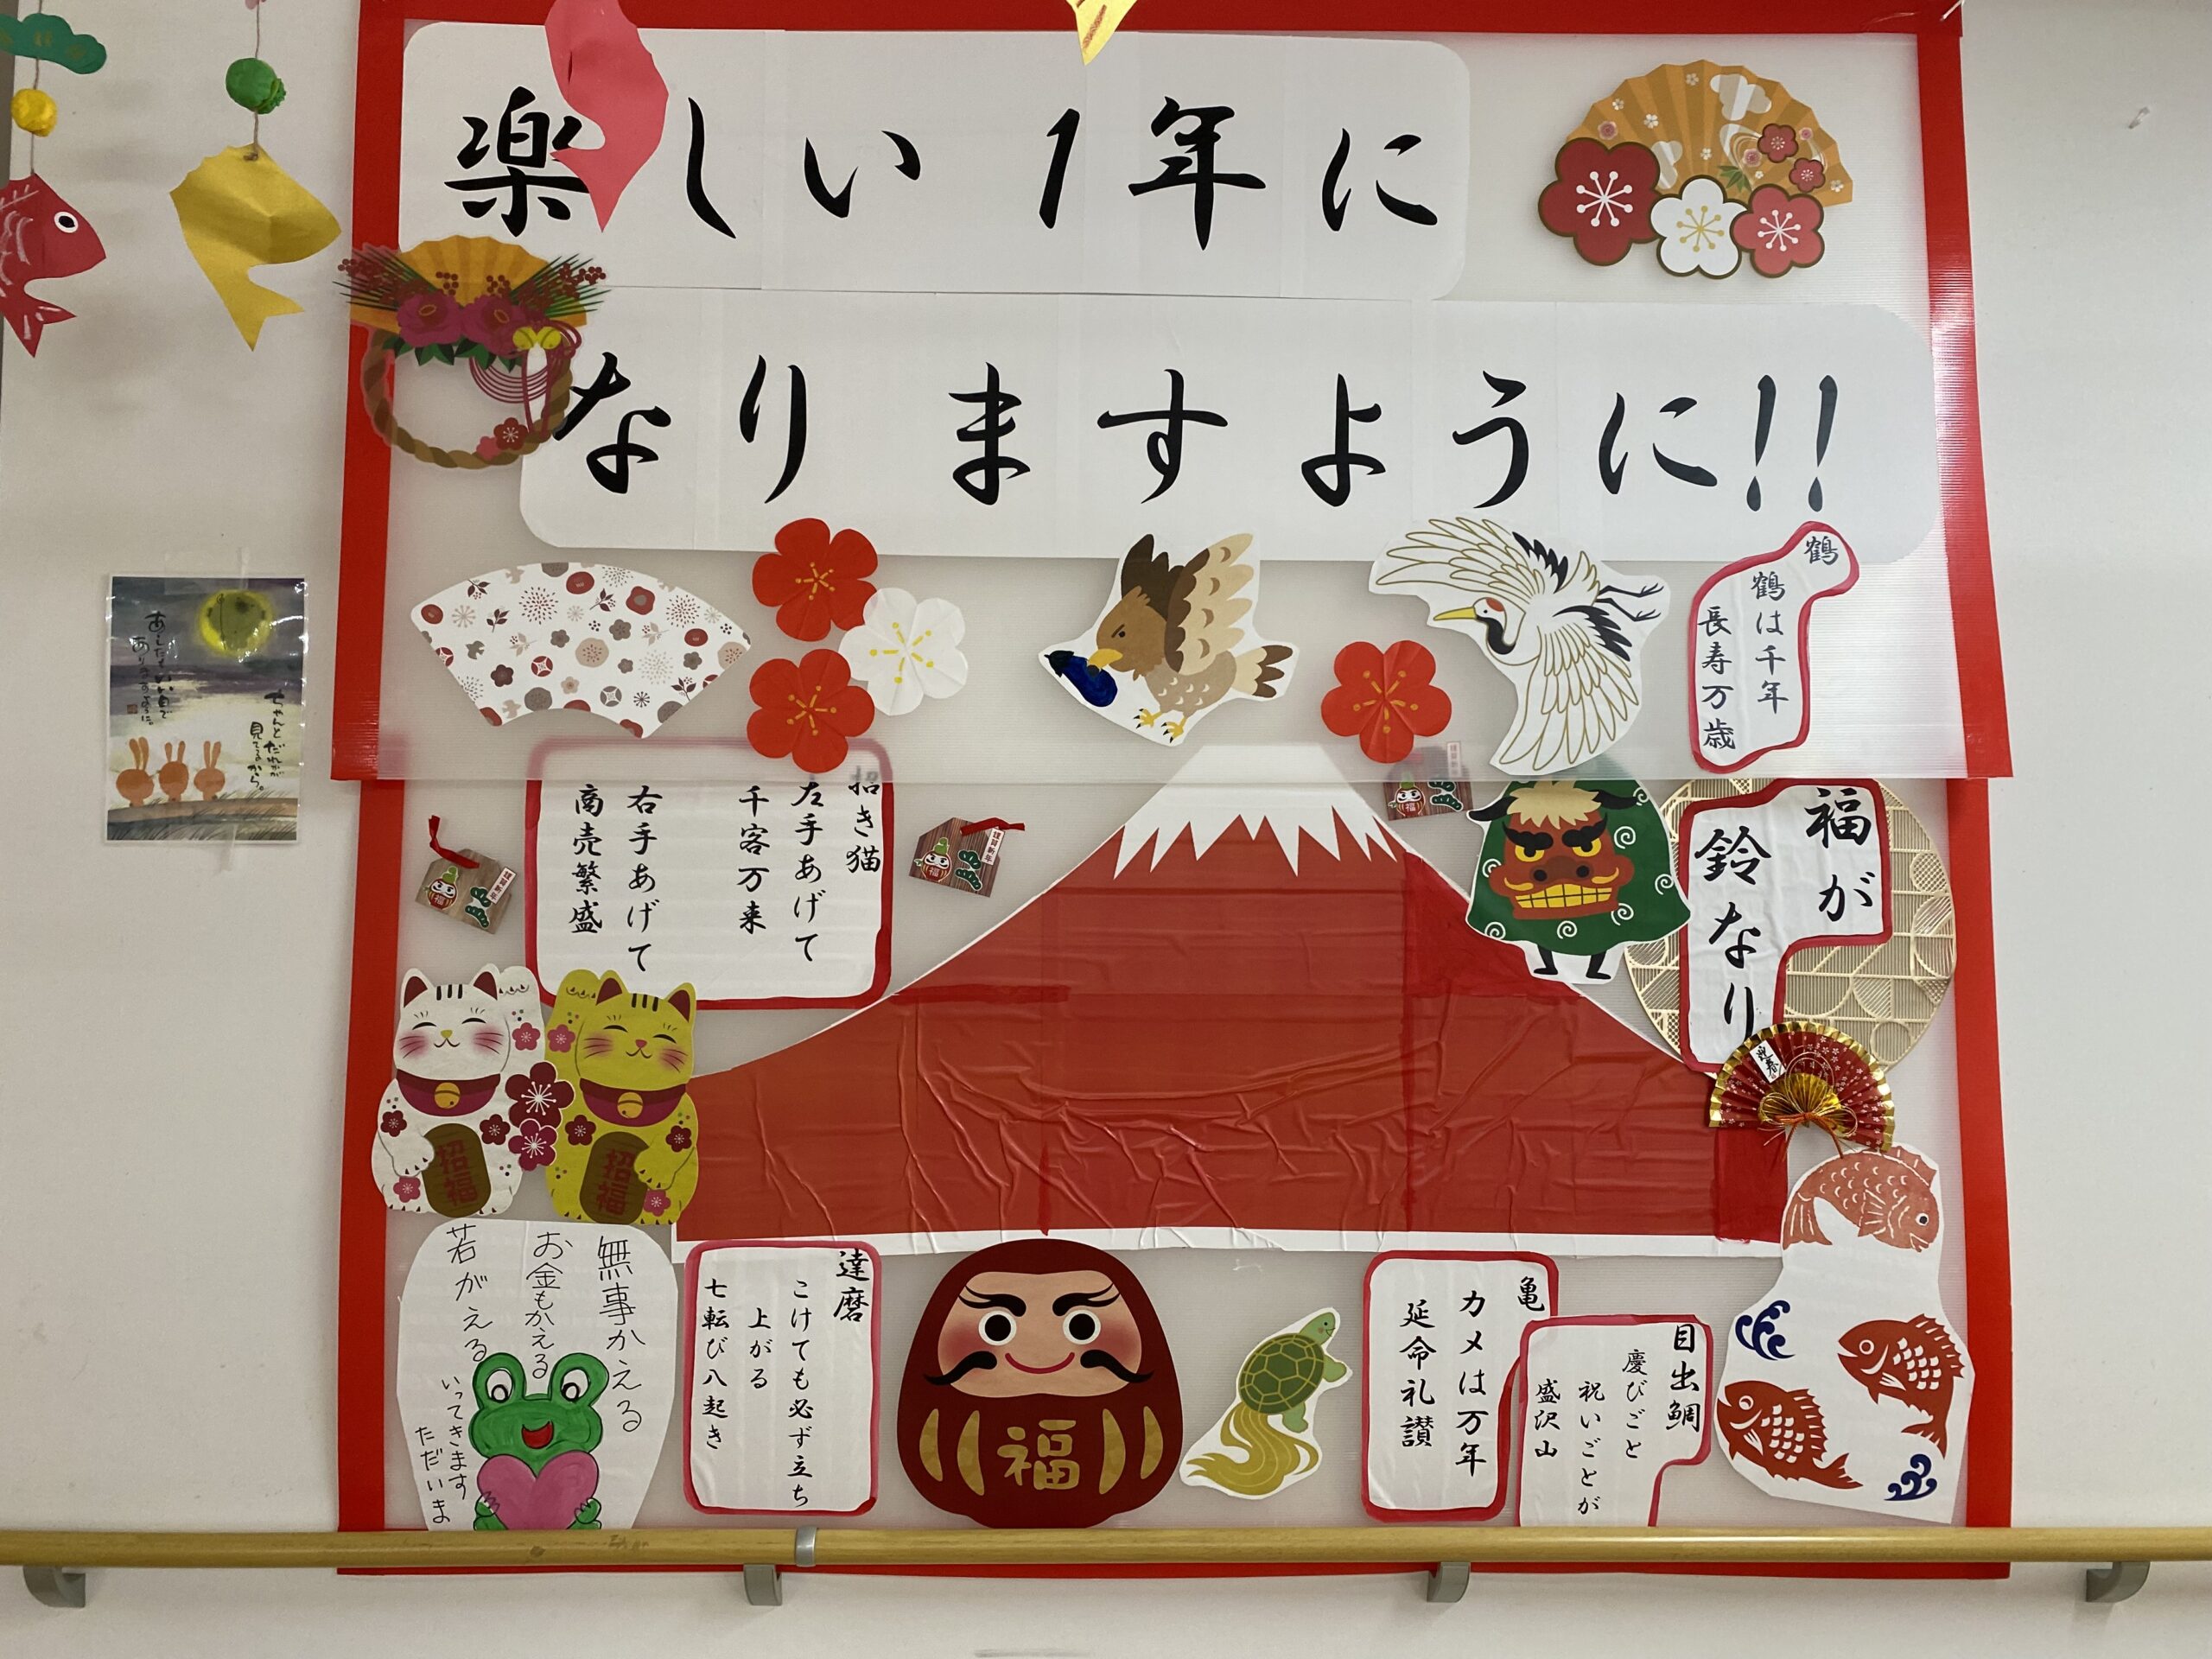 楽しい1年に
なりますように!!
鶴
鶴は千年
長寿万歳
招き猫
左手あげて
千客万来
右手あげて
商売繁盛
福が
鈴なり
迎春
招福
招福
福
謹賀新年
福
謹賀新年
福
謹賀新年
無事かえる
お金もかえる
若がえる
いってきます
ただいま
達磨
こけても必ず立ち
上がる
七転び八起き
福
亀
カメは万年
延命礼讃
目出鯛
慶びごと
祝いごとが
盛沢山
ちゃんとだれかが
見てるから。
あしたもいい日で
ありますように。